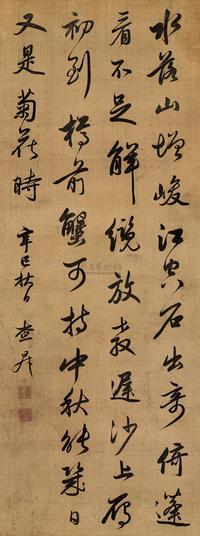 水落山增峻江空石出奇倚蓬
看不足解缆放教遲沙上雁
初到樽前蟹可持中秋能幾日
又是菊花時 辛巳秋日 查昇